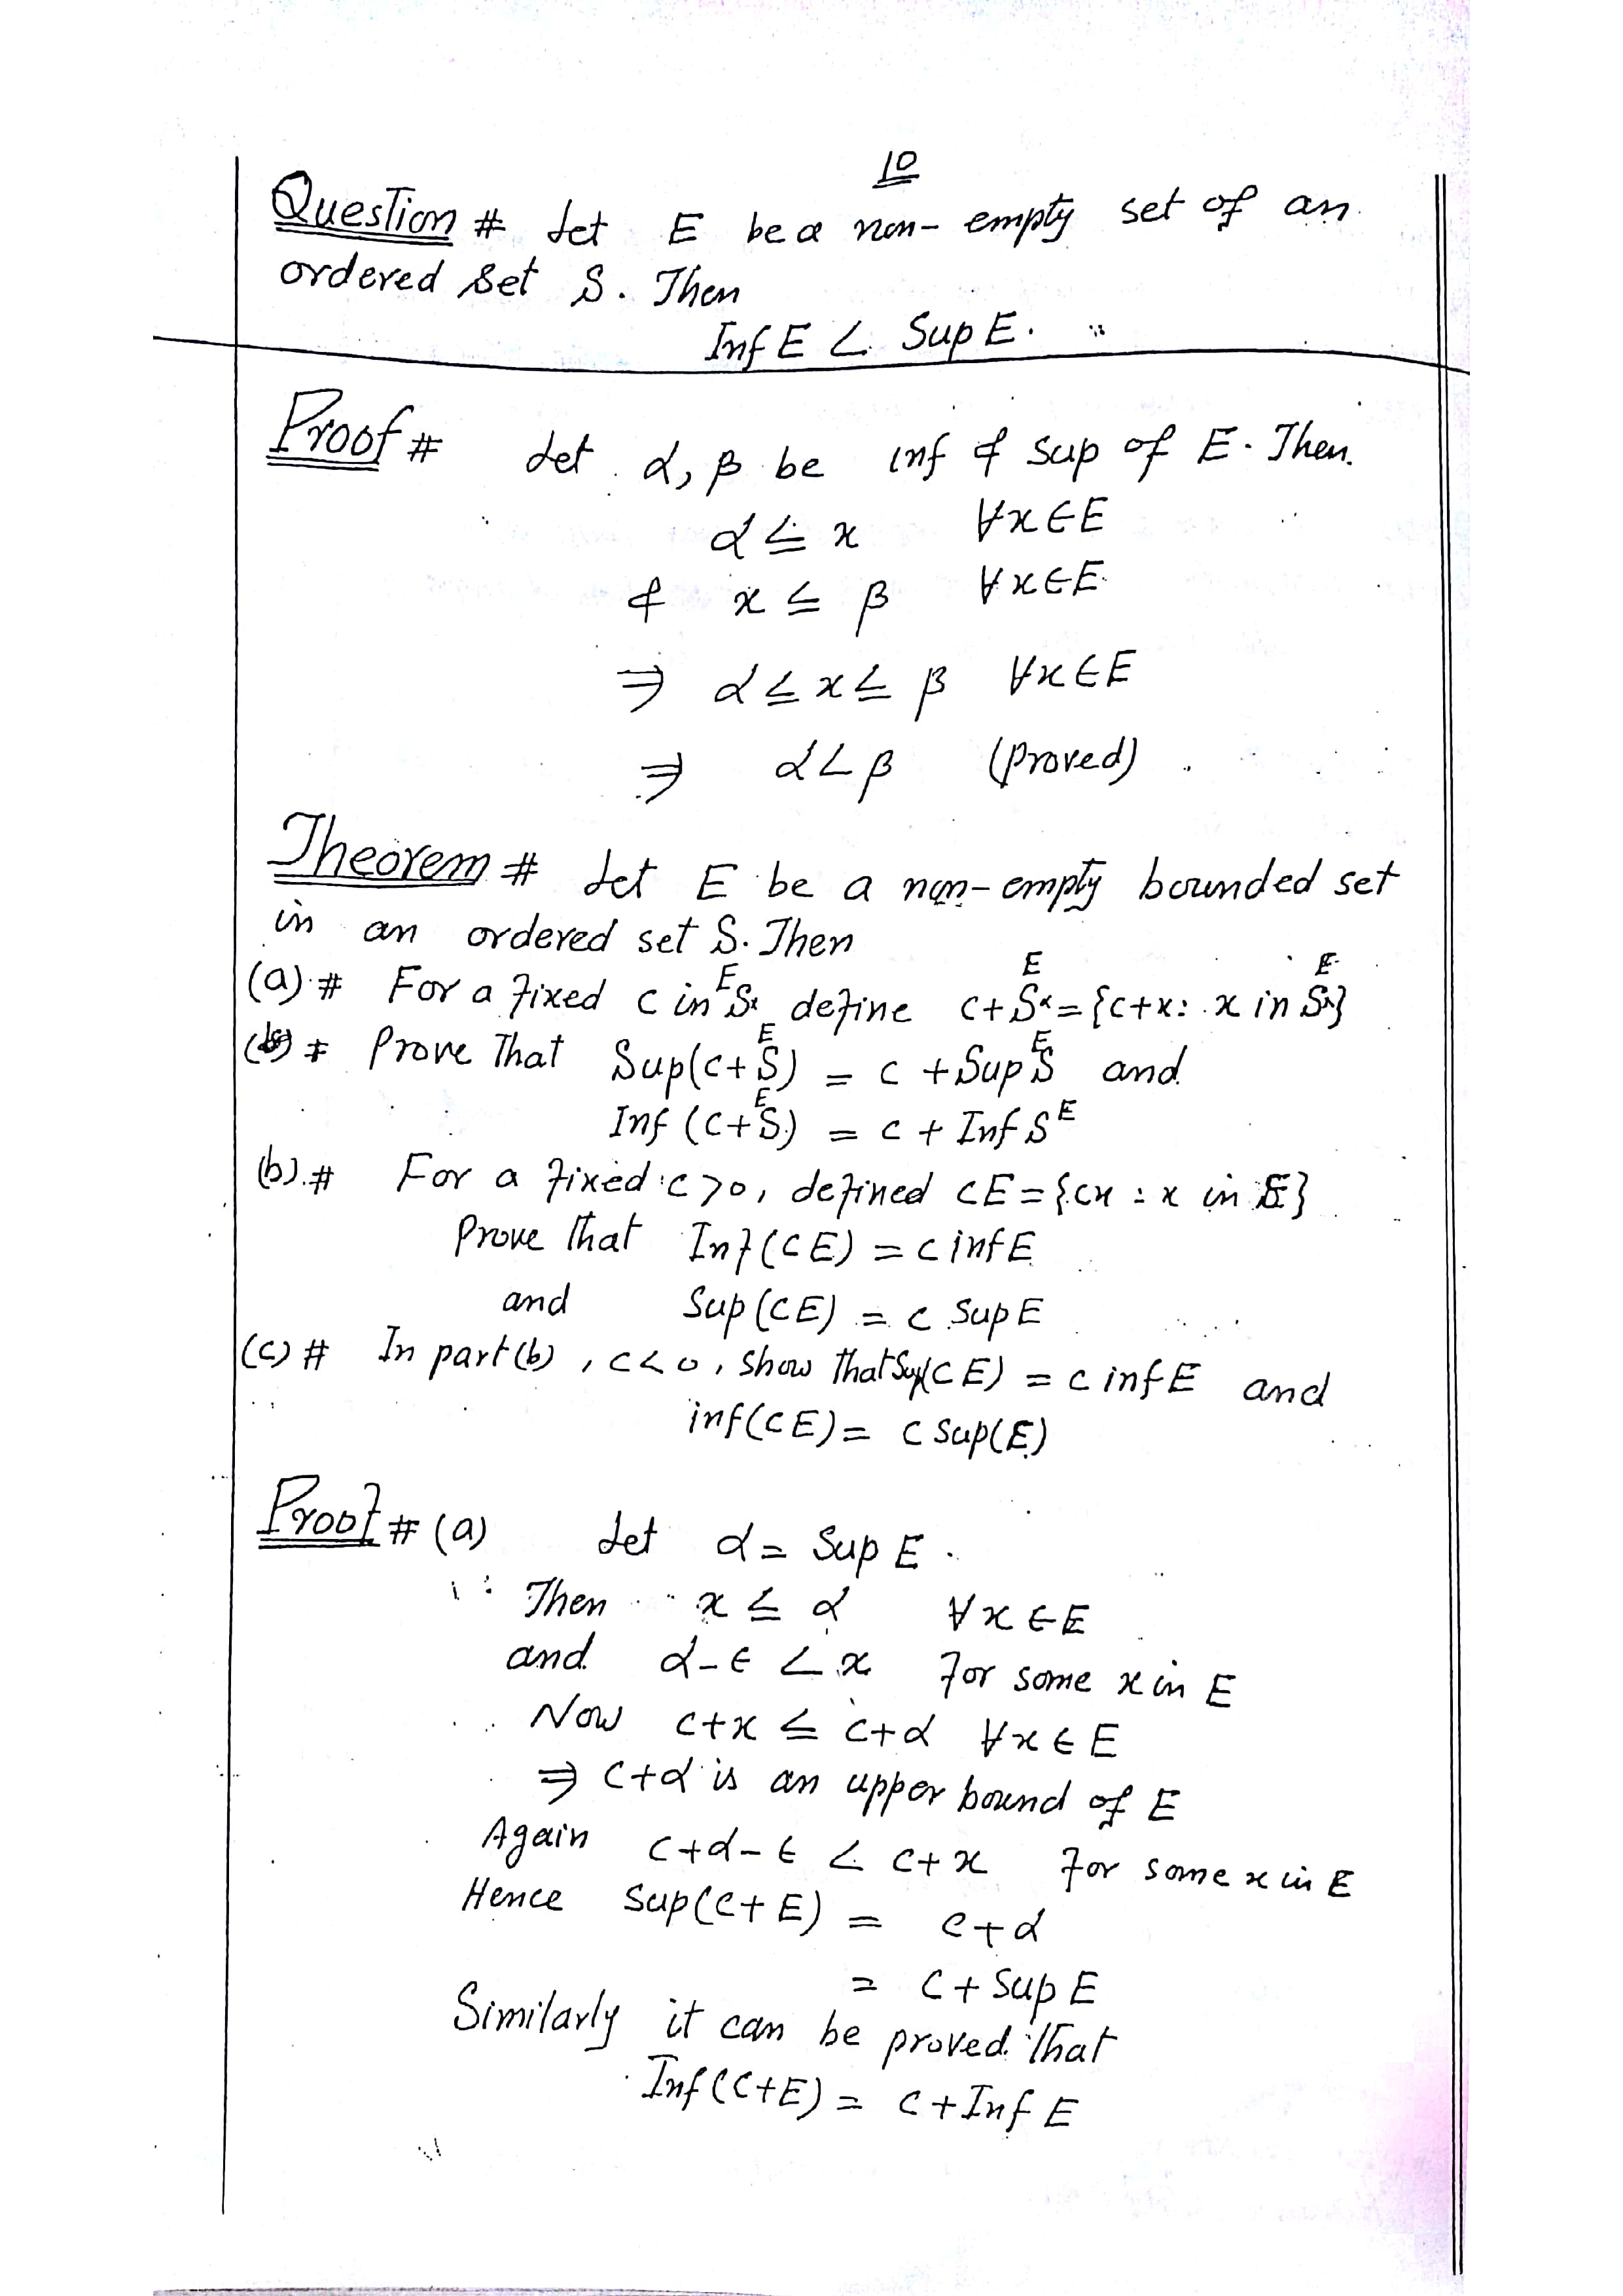 10
Question # Let E be a non-empty set of an
ordered set S. Then
Inf E < Sup E.
Proof # Let α, β be inf & sup of E. Then.
α ≤ x ∀x∈E
& x ≤ β ∀x∈E
⇒ α ≤ x ≤ β ∀x∈E
⇒ α < β (proved).
Theorem # Let E be a non-empty bounded set
in an ordered set S. Then
E E E
(a) # For a fixed c in S define c+S = {c+x: x in S}
E E
# Prove That Sup(c+S) = c + Sup S and
E
Inf (c+S) = c + Inf S E
(b).# For a fixed c>0, defined cE = {cx : x in E}
Prove that Inf(CE) = c inf E
and Sup(CE) = c Sup E
(c) # In part(b), c<0, show that Sup(CE) = c inf E and
inf(CE) = c Sup(E)
Proof # (a) Let α = Sup E.
Then x ≤ α ∀x∈E
and α-ϵ < x for some x in E
Now c+x ≤ c+α ∀x∈E
⇒ c+α is an upper bound of E
Again c+α-ϵ < c+x for some x in E
Hence Sup(c+E) = c+α
= c+ Sup E
Similarly it can be proved that
Inf(C+E) = c+Inf E